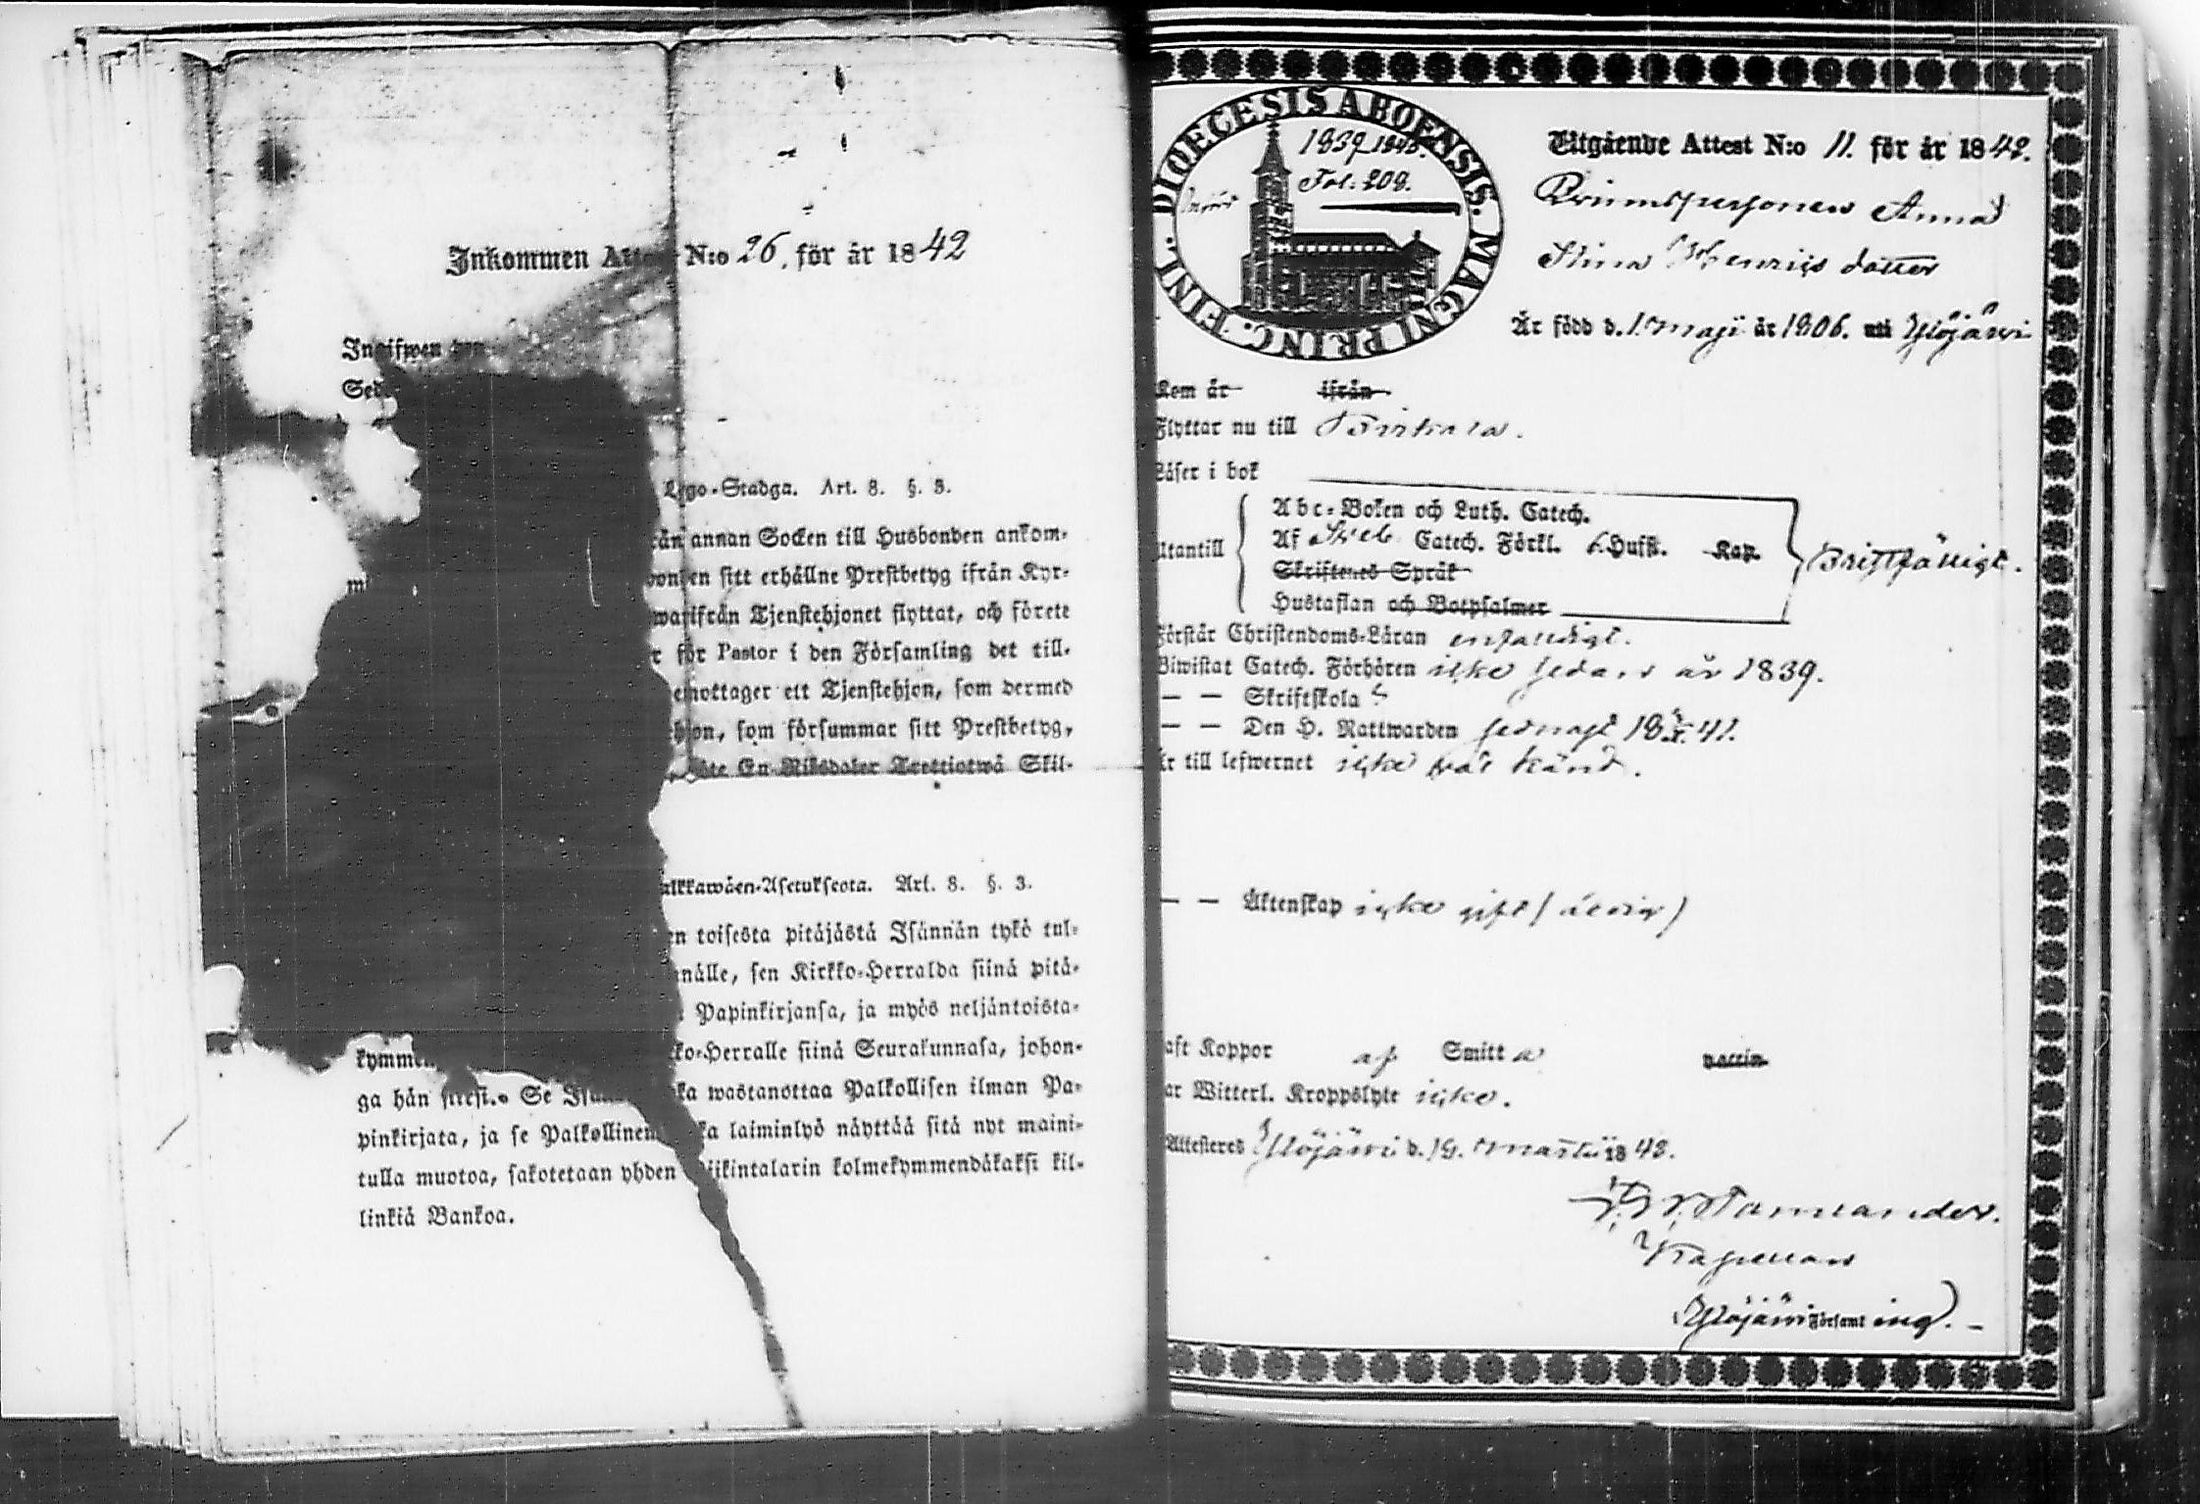 Inkommen Attest N:o 26, för år 1842
Ingifwen den
Lego-Stadga. Art. 8. §. 3.
från annan Socken till Husbonden ankom-
sitt erhållne Prestbetyg ifrån Kyr-
warifrån Tjenstehjonet flyttat, och förete
för Pastor i den Församling det till-
emottager ett Tjenstehjon, som dermed
som försummar sitt Prestbetyg,
böte En Riksdaler Trettiotwå Skil-
Palkkawäen-Asetuksesta. Art. 8. §. 3.
toisesta pitäjästä Isännän tykö tul-
sen Kirkko-Herralda siinä pitä-
Papinkirjansa, ja myös neljäntoista-
kymmen Kirkko-Herralle siinä Seurakunnasa, johon-
ga hän Se joka wastanottaa Palkollisen ilman Pa-
pinkirjata, ja se Palkollinen joka laiminlyö näyttää sitä nyt maini-
tulla muotoa, sakotetaan yhden Riikintalarin kolmekymmendäkaksi kil-
linkiä Bankoa.
DIOECESIS ABOENSIS. MAGNI PRINC. FINL.
1839
Fol: 209.
Utgående Attest N:o 11. för år 1842.
Qvinnspersonen Anna
Stina Henricsdotter
Är född d. 1. Maji år 1806. uti Ylöjärvi
Kom år ifrån
Flyttar nu till Birkala.
Läser i bok
Utantill
Abc-Boken och Luth. Catech.
Af Sveb. Catech. Förkl. 6. Hufst. Kap.
Skriftenes Språk
Hustaflan och Botpsalmer
Bristfälligt.
Förstår Christendoms-Läran enfaldigt.
Biwistat Catech. Förhören icke sedan år 1839.
— — Skriftskola
— — Den H. Nattwarden sednast 41.
Är till lefwernet icke här känd.
— — Äktenskap icke gift (ledig)
Haft Koppor af Smitta vaccin
Har Witterl. Kroppslyte icke.
Attesteres Ylöjärvi d. 19. Martii 1842.
Kapellan
Ylöjärvi Församling.